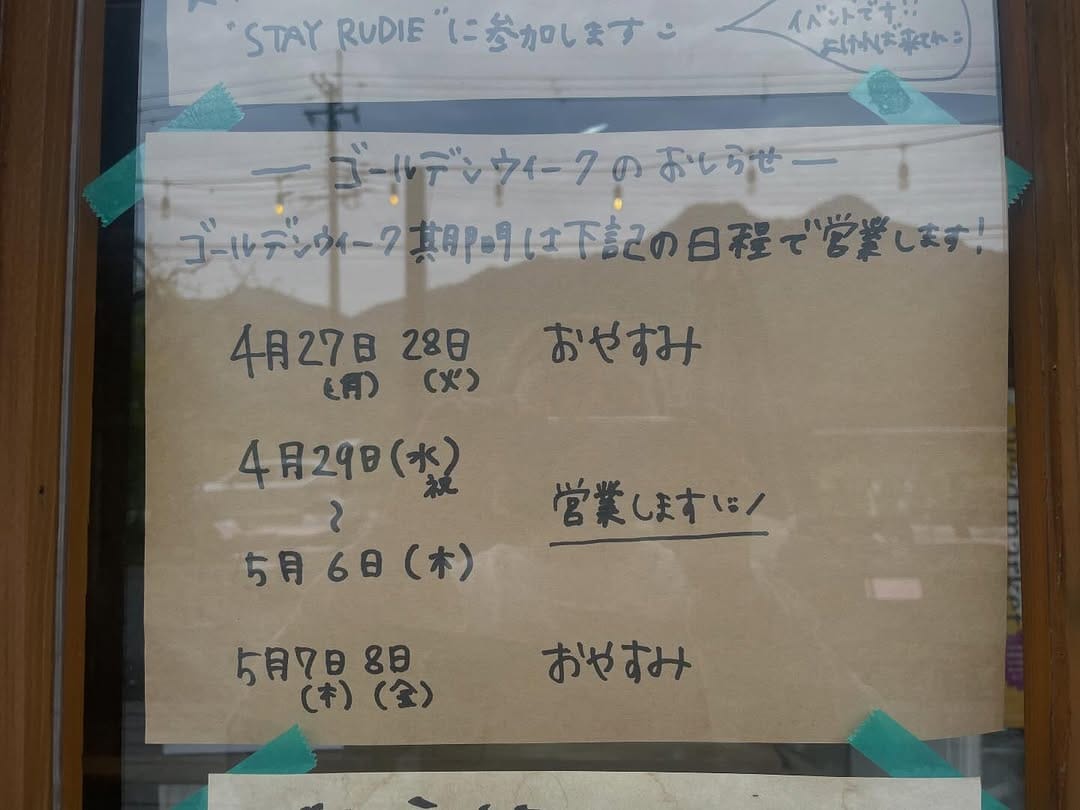 "STAY RUDIE"に参加します
イベントです!!
ゴールデンウィークのおしらせ
ゴールデンウィーク期間は下記の日程で営業します!
4月27日 28日 おやすみ
(月) (火)
4月29日(水)
祝
〜
営業します!
5月6日(木)
5月7日 8日 おやすみ
(木) (金)